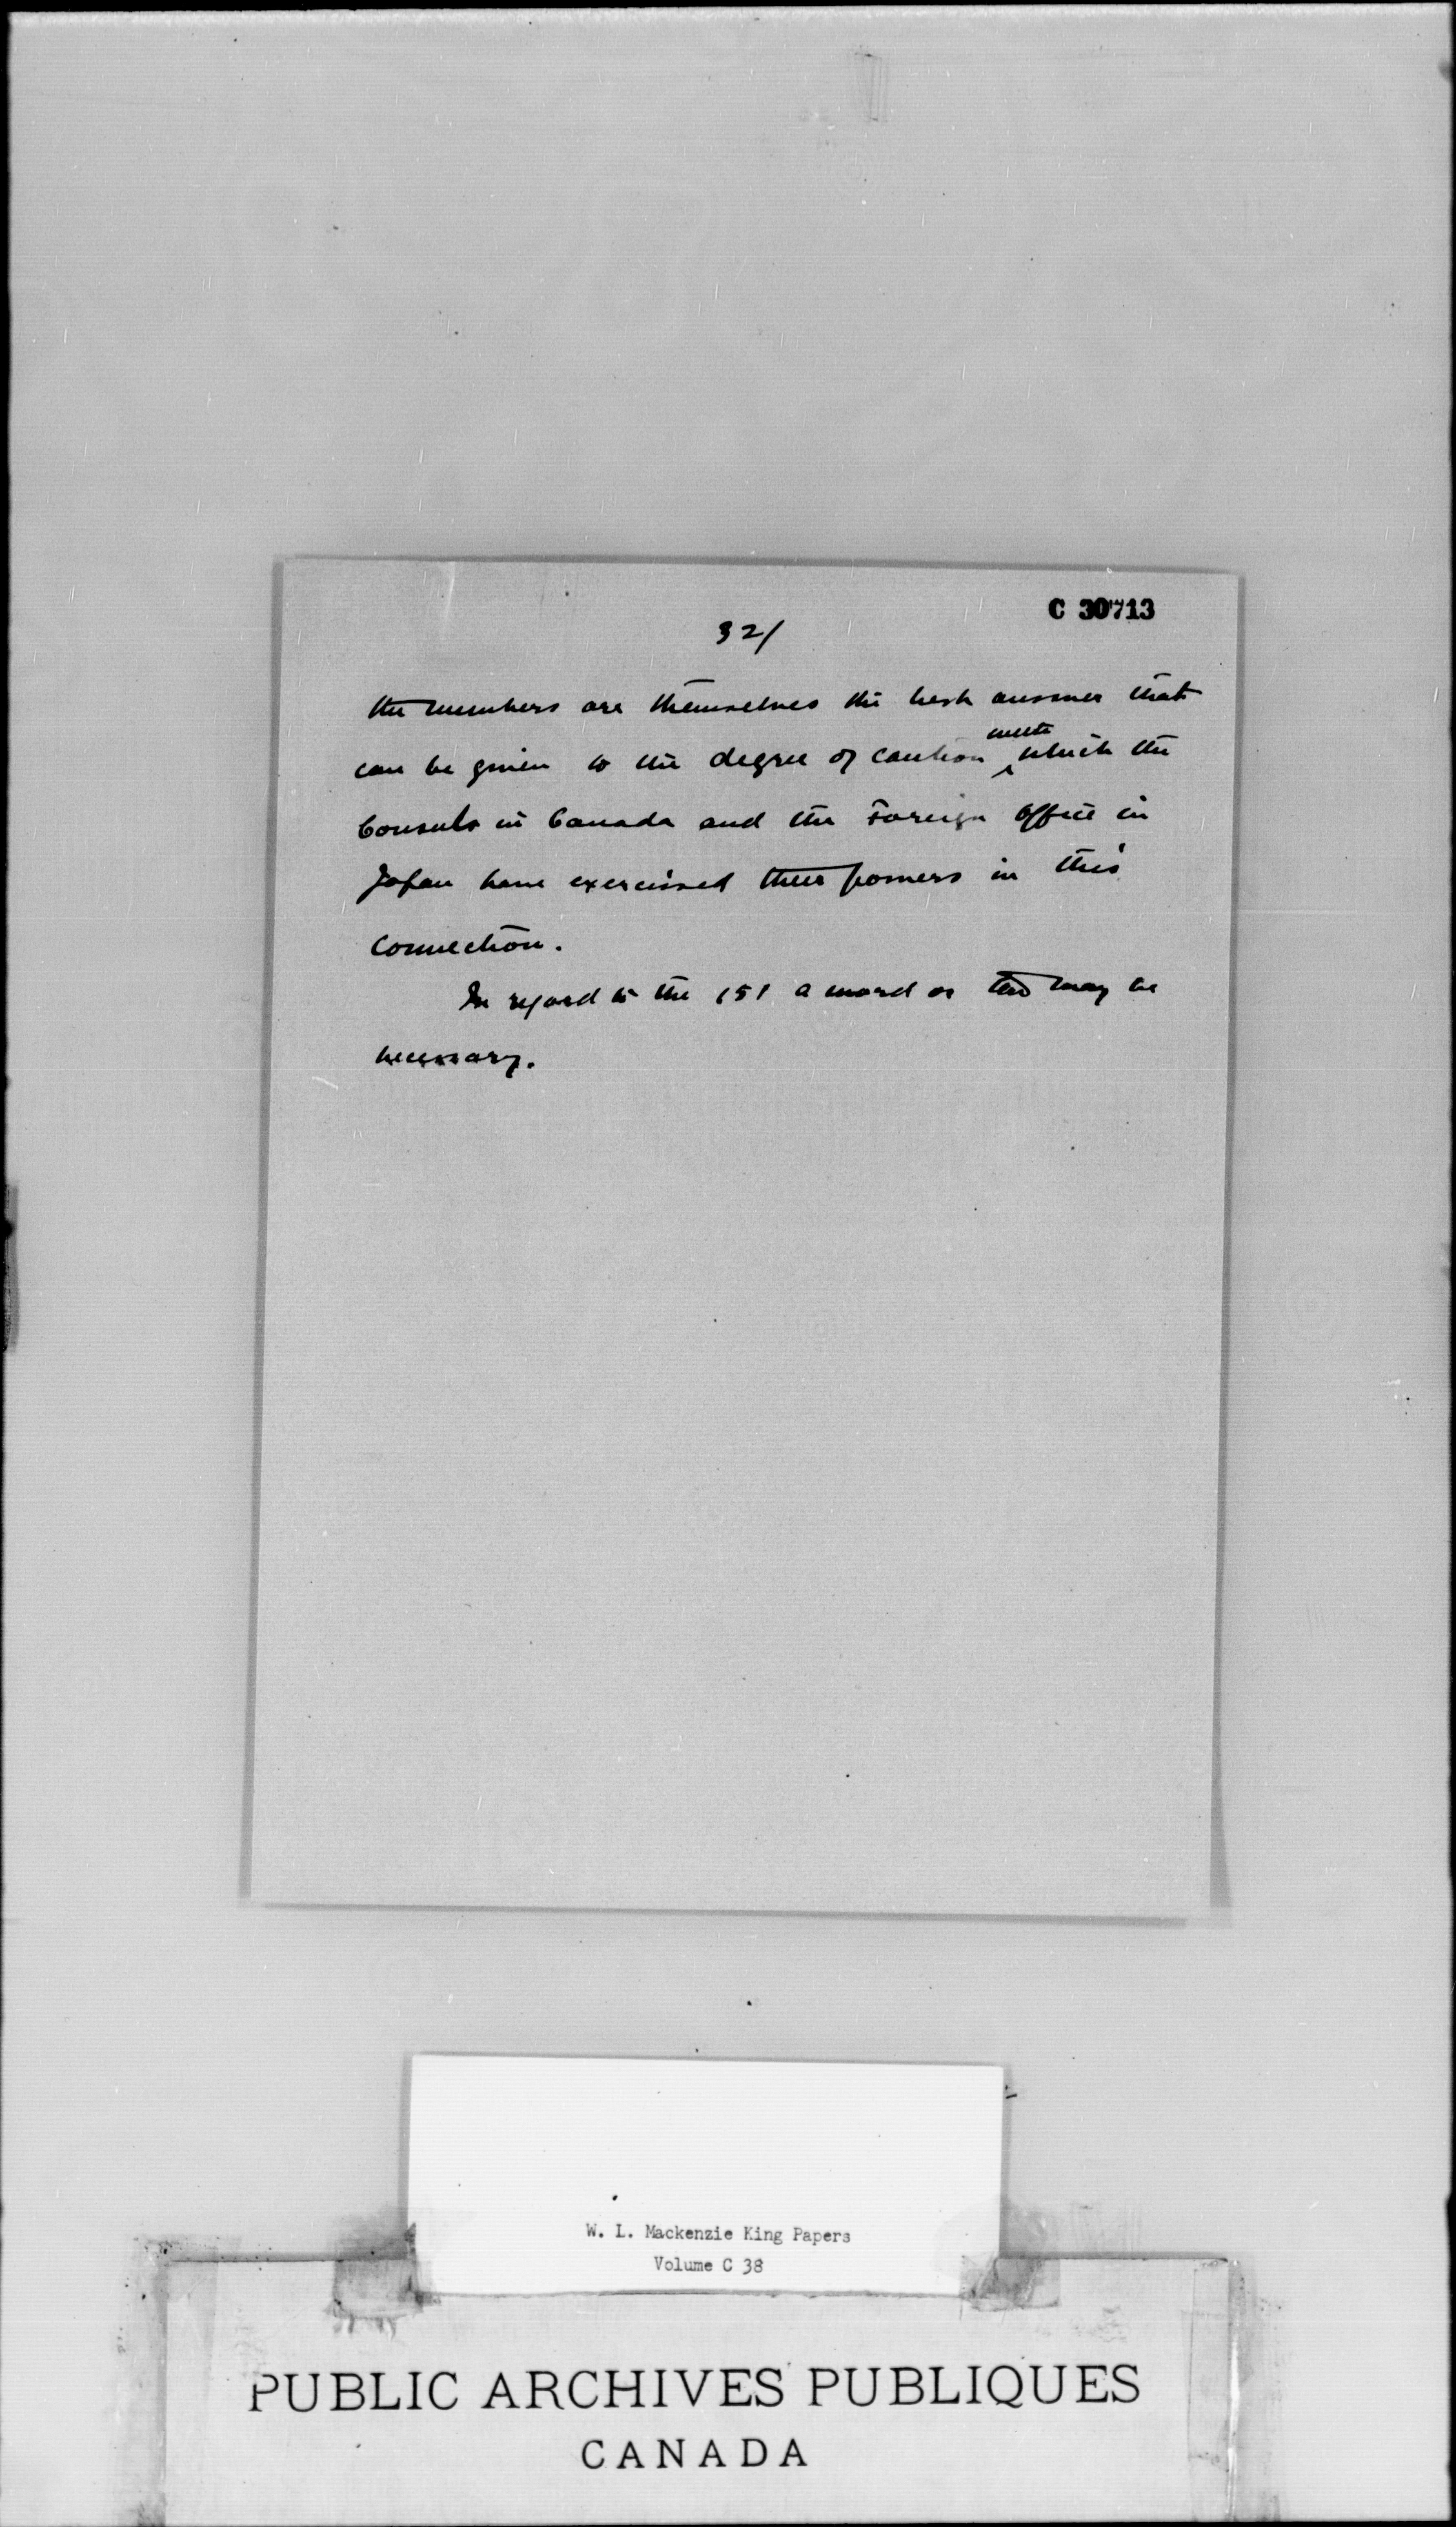 C 30713
32/
the members are themselves the best answer that
can be given to the degree of caution with which the
Consuls in Canada and the Foreign Office in
Japan have exercised their powers in this
connection.
In regard to the 151 a word or two may be
necessary.
W. L. Mackenzie King Papers
Volume C 38
PUBLIC ARCHIVES PUBLIQUES
CANADA